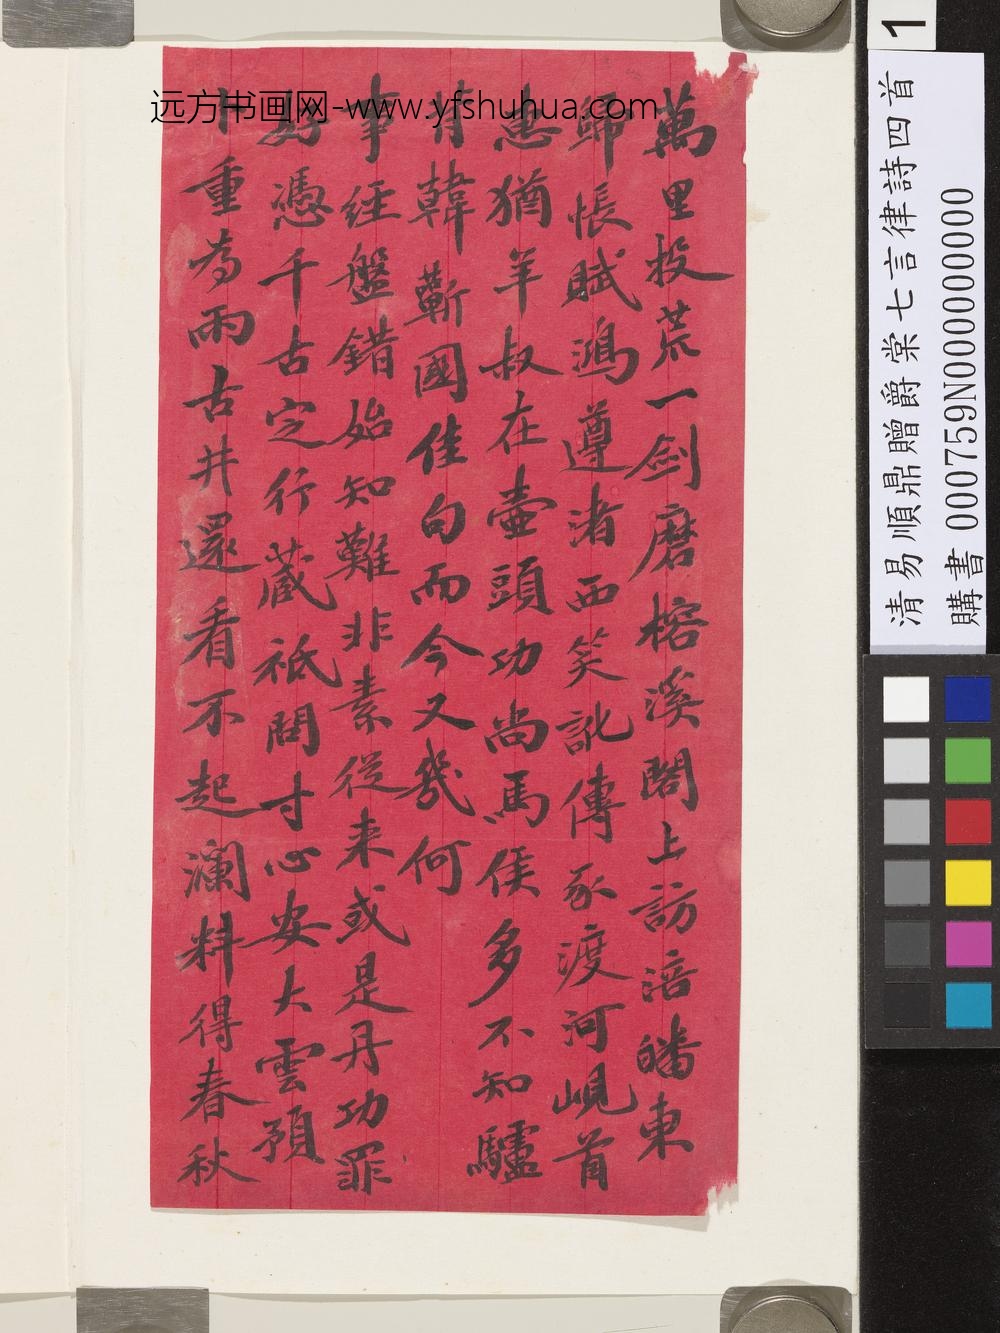 萬里投荒一劍磨榕溪閣上訪涪皤東
歸悵賦鴻遵渚西笑訛傳豕渡河峴首
惠猶羊叔在壺頭功尚馬侯多不知驢
背韓蘄國佳句而今又幾何
事經盤錯始知難非素從来或是丹功罪
憑千古定行藏祗問寸心安大雲預
重為雨古井還看不起瀾料得春秋
远方书画网-www.yfshuhua.com
1
清易順鼎贈爵棠七言律詩四首
購書 000759N000000000